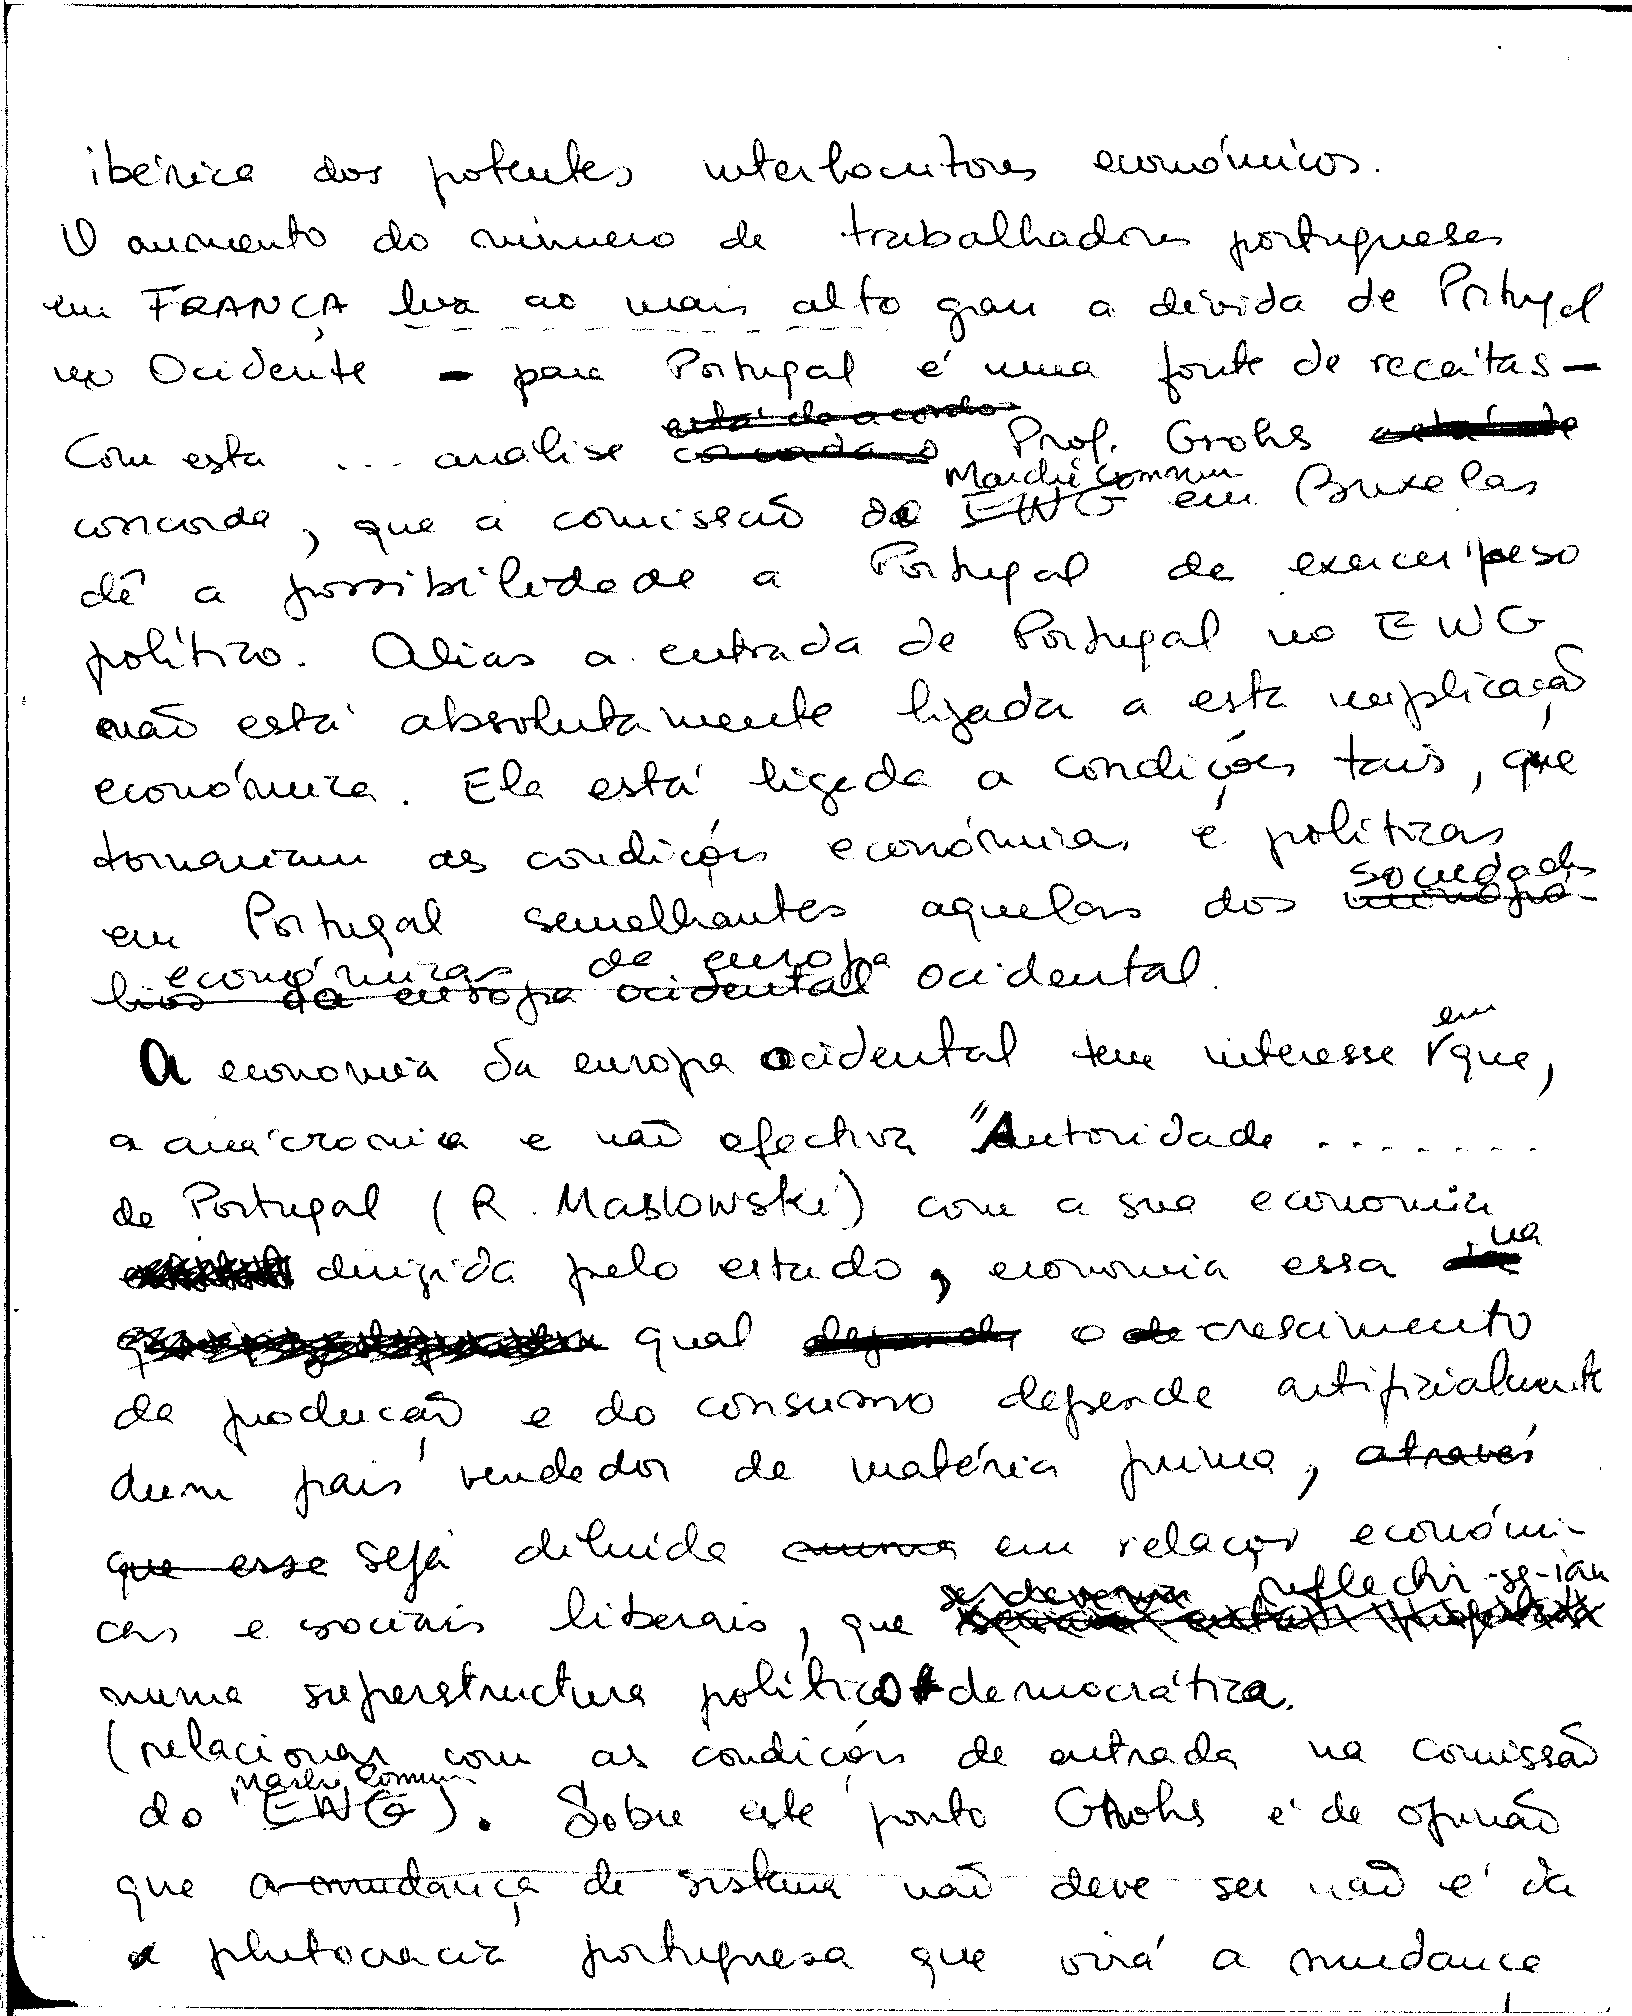 ibérica dos potentes interlocutores económicos.
O aumento do número de trabalhadores portugueses
em FRANÇA leva ao mais alto grau a dívida de Portugal
no Ocidente – para Portugal é uma fonte de receitas –
está de acordo
Com esta ... análise concorda o Prof. Grohs
Marché Commun
concorda, que a comissão do EWG em Bruxelas
dê a possibilidade a Portugal de exercer peso
político. Alias a entrada de Portugal no EWG
não está absolutamente ligada a esta implicação
económica. Ela está ligada a condições tais, que
tornariam as condições económicas e políticas
sociedades
em Portugal semelhantes aquelas dos monopó-
económicas de europa
lios da europa ocidental ocidental.
em
A economia da europa ocidental tem interesse que,
a anácronica e não efectiva "Autoridade .......
de Portugal (R. Maslowski) com a sua economia
, na
dirigida pelo estado, economia essa
qual depende o decrescimento
da produção e do consumo depende artificialmente
dum país vendedor de matéria prima, através
que esse seja diluída numa em relações económi-
se deveria reflechir-se-iam
cas e sociais liberais, que
numa superstructura político democrática.
(relacionar com as condições de entrada na comissão
Marché Commun
do EWG). Sobre este ponto Grohs é de opinião
que a mudança de sistema não deve ser não é da
a plutocracia portuguesa que virá a mudança